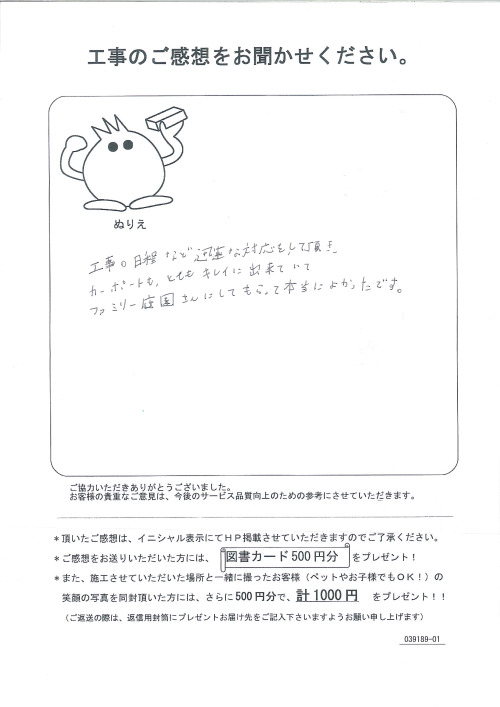 工事のご感想をお聞かせください。
ぬりえ
工事の日程など迅速な対応をして頂き、
カーポートも、とてもキレイに出来ていて
ファミリー庭園さんにしてもらって本当によかったです。
ご協力いただきありがとうございました。
お客様の貴重なご意見は、今後のサービス品質向上のための参考にさせていただきます。
＊頂いたご感想は、イニシャル表示にてＨＰ掲載させていただきますのでご了承ください。
＊ご感想をお送りいただいた方には、図書カード500円分をプレゼント！
＊また、施工させていただいた場所と一緒に撮ったお客様（ペットやお子様でもＯＫ！）の
笑顔の写真を同封頂いた方には、さらに500円分で、計1000円　をプレゼント！！
（ご返送の際は、返信用封筒にプレゼントお届け先をご記入下さいますようお願い申し上げます）
039189-01